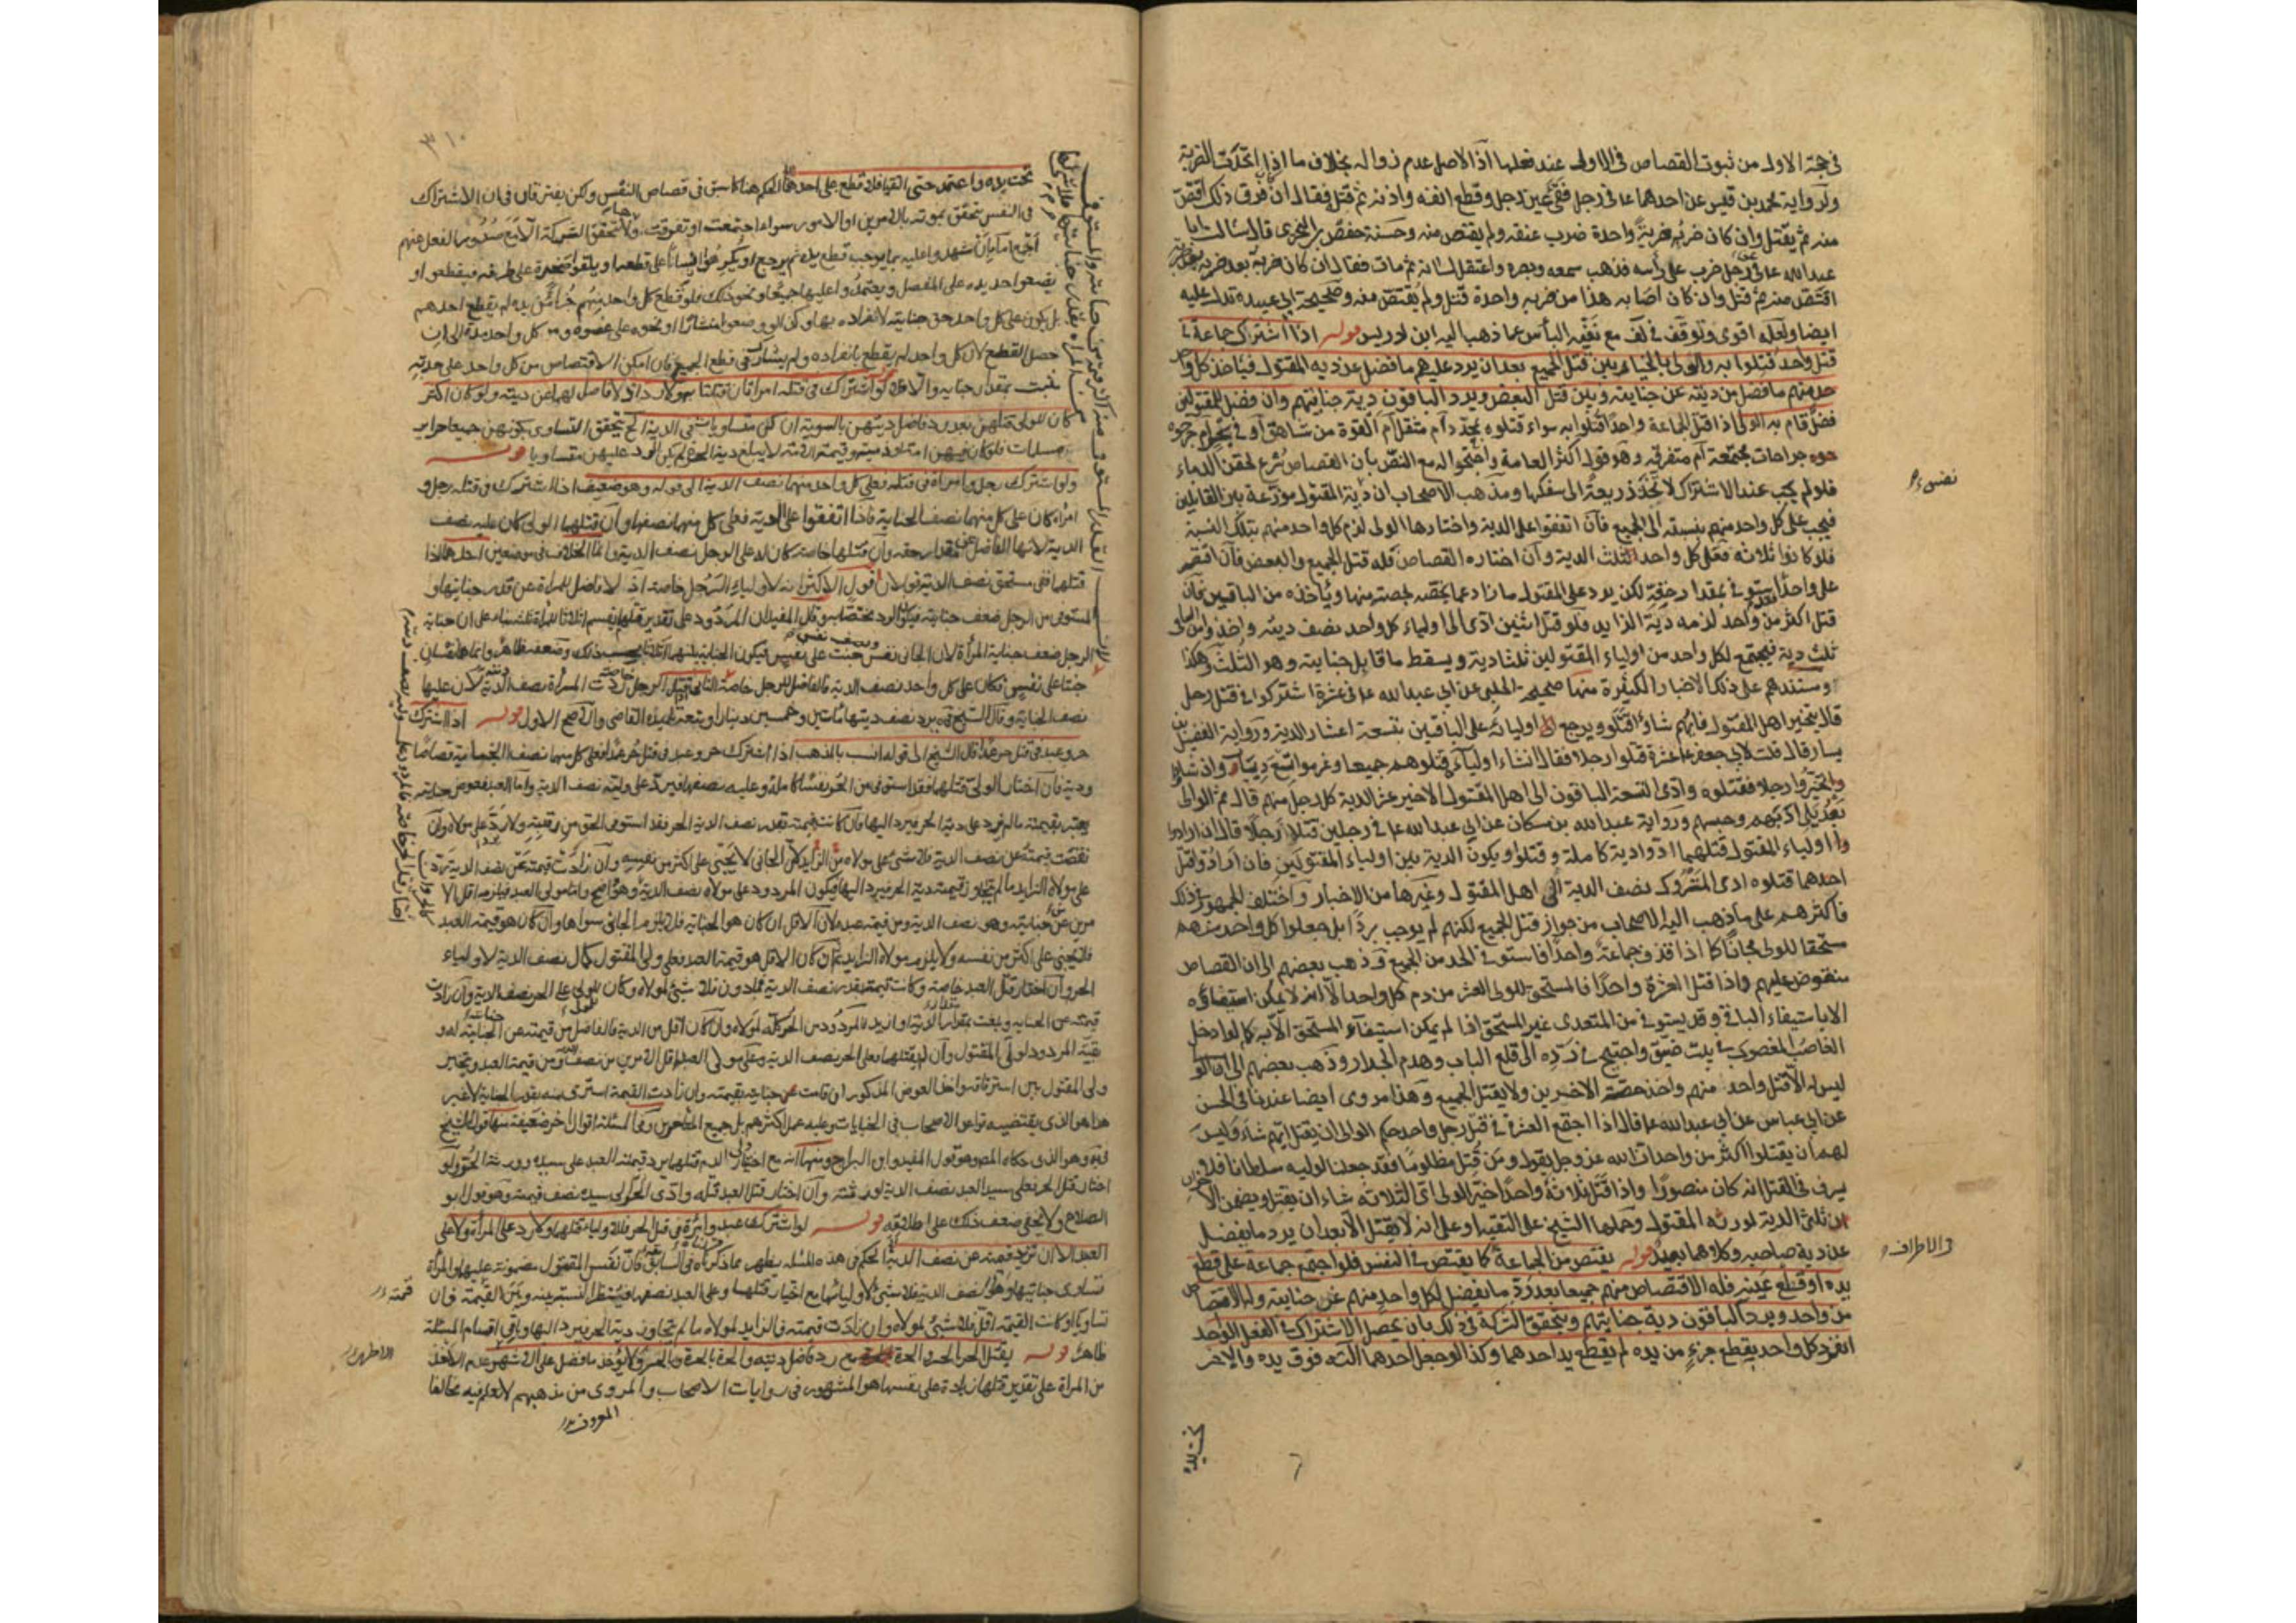 في حجة الاول من ثبوت القصاص في الاولى عند فعلها اذ الاصل عدم زواله بخلاف ما اذا اتحدت الضربة
ولرواية محمد بن قيس عن احدهما ع في رجل فقئ عين رجل وقطع انفه واذنه ثم قتل فقال ان فرق ذلك اقتص
منه ثم يقتل وان كان ضربه ضربة واحدة ضرب عنقه ولم يقتص منه وحسنة حفص بن البختري قال سالت ابا
عبد الله ع عن رجل ضرب على راسه فذهب سمعه وبصره واعتقل لسانه ثم مات فقال ان كان ضربه ضربة بعد ضربة
اقتص منه ثم قتل وان كان اصابه هذا من ضربه واحدة قتل ولم يقتص منه وصحيحة ابي عبيده تدل عليه
ايضا ولعله اقوى وتوقف في لف مع نفيه الباس عما ذهب اليه ابن ادريس قوله اذا اشترك جماعة في
قتل واحد قتلوا به والولي بالخيار بين قتل الجميع بعد ان يرد عليهم ما فضل عن ديه المقتول فياخذ كل وا
حد منهم ما فضل من ديته عن جنايته وبين قتل البعض ويرد الباقون دية جنايتهم وان فضل للمقتولين
فضل قام به الولي اذا قتل الجماعة واحدا قتلوا به سواء قتلوه بحد دام مثقل ام القوة من شاهق او في بحر ام جر
حوه جراحات مجتمعة ام متفرقة وهو قول اكثر العامة واحتجوا له مع النص بان القصاص شرع لحقن الدماء
نفس
فلو لم يجب عند الاشتراك لاتخذ ذريعة الى سفكها ومذهب الاصحاب ان دية المقتول موزعة بين القاتلين
فيجب على كل واحد منهم بنسبته الى الجميع فان اتفقوا على الدية واختارها الولي لزم كل واحد منهم بتلك النسبة
فلو كانوا ثلاثه فعلى كل واحد ثلث الدية وان اختاره القصاص فله قتل الجميع والبعض فان اقتصر
على واحد استوفى بمقدار حقه لكن يرد على المقتول ما زاد عما يخصه منها وياخذه من الباقين فان
قتل اكثر من واحد لزمه دية الزايد فلو قتل اثنين ادى الى اولياء كل واحد نصف ديته واخذ من الباقي
ثلث دية فيجتمع لكل واحد من اولياء المقتولين ثلثا دية ويسقط ما قابل جنايته وهو الثلث وهكذا
ومستندهم على ذلك الاخبار الكثيرة منها صحيحة الحلبي عن ابي عبد الله ع في عشرة اشتركوا في قتل رجل
قال يتخير اهل المقتول فايهم شاؤا قتلوه ويرجع اولياؤه على الباقين بتسعة اعشار الدية ورواية الفضيل بن
يسار قال قلت لابي جعفر ع عشرة قتلوا رجلا فقال ان شاء اولياؤه قتلوهم جميعا وغرموا تسع ديات وان شاؤا
تخيروا رجلا فقتلوه وادى التسعة الباقون الى اهل المقتول الاخير عشر الدية كل رجل منهم قال ثم الوالي
بعد يلي ادبهم وحبسهم ورواية عبد الله بن مسكان عن ابي عبد الله ع في رجلين قتلا رجلا قال ان اراد
اولياء المقتول قتلهما ادوا دية كاملة وقتلوا ويكون الدية بين اولياء المقتولين فان ارادوا قتل
احدهما قتلوه ادى المتروك نصف الدية الى اهل المقتول وغيرها من الاخبار واختلف الجمهور في ذلك
فاكثرهم على ما ذهب اليه الاصحاب من جواز قتل الجميع لكنهم لم يوجب ردا بل جعلوا كل واحد منهم
مستحقا للولي مجانا كما اذا قذف جماعة واحدا فاستوفى الحد من الجميع وذهب بعضهم الى ان القصاص
منقوض عليهم فاذا قتل العشرة واحدا فالمستحق للولي العشر من دم كل واحد الا انه لا يمكن استيفاؤه
الا باستيفاء الباقي وقد يستوفى من المتعدى غير المستحق اذا لم يمكن استيفاء المستحق الا به كما لو ادخل
الغاصب المغصوب في بيت ضيق واحتيج في رده الى قلع الباب وهدم الجدار وذهب بعضهم الى انه
ليس له الا قتل واحد منهم واخذ حصة الاخرين ولا يقتل الجميع وهذا مروى ايضا عندنا في الحسن
عن ابي عباس عن ابي عبد الله ع قال اذا اجتمع العشرة في قتل رجل واحد حكم الوالي ان يقتل ايهم شاء وليس
لهم ان يقتلوا اكثر من واحد ان الله عز وجل يقول ومن قتل مظلوما فقد جعلنا لوليه سلطانا فلا
يسرف في القتل انه كان منصورا واذا قتل ثلاثة واحدا خير الولي اي الثلاثه شاء ان يقتل ويضمن الا
خران ثلثي الدية لورثه المقتول وحملها الشيخ على التقية او على انه لا يقتل الا بعد ان يرد ما يفضل
عن دية صاحبه وكلاهما بعيد قوله يقتص من الجماعة كما يقتص في النفس فلو اجتمع جماعة على قطع
في الاطراف
يده او قطع عينه فله الاقتصاص منهم جميعا بعد رد ما يفضل لكل واحد منهم عن جنايته وله الاقتصاص
من واحد ويرد الباقون دية جنايتهم ويتحقق الشركة في ذلك بان يحصل الاشتراك في الفعل الواحد فلو
انفرد كل واحد بقطع جزء من يده لم يقطع يد احدهما وكذا لو جعل احدهما آلته فوق يده والاخر
تحت يده
٣١٠
تحت يده واعتمد حتى التقيا فلا قطع على احدهما الحكم هنا كما سبق في قصاص النفس ولكن يفترقان في ان الاشتراك
في النفس يتحقق بموته بالامرين او الامور سواء اجتمعت او تفرقت ولا يتحقق الشركة الا مع صدور الفعل عنهم
اجمع اما بان شهدوا عليه بما يوجب قطع يده ثم يرجع او يكرهوا انسانا على قطعه او يلقوا صخرة على طرفه فيقطعه او
يضعوا حديده على المفصل ويعتمدوا عليها جميعا ونحو ذلك فلو قطع كل واحد منهم جزءا من يده لم يقطع احدهم
بل يكون على كل واحد حق جنايته لانفراده بها وكذا لو وضعوا منشارا ونحوه على عضوه ومد كل واحد مدة الى ان
حصل القطع لان كل واحد لم يقطع بانفراده ولم يشارك في قطع الجميع فان امكن الاقتصاص من كل واحد على حدته
ثبت بمقدار جنايته والا فلا قوله لو اشترك في قتله امراتان قتلتا به ولا رد اذ لا فاضل لهما عن ديته ولو كان اكثر
كان للولي قتلهن بعد رد فاضل ديتهن بالسوية ان كن متساويات في الدية الخ يتحقق التساوي بكونهن جميعا حراير
مسلمات فلو كان فيهن امة او ذميه وقيمة الامة لا يبلغ دية الحرة لم يكن الرد عليهن متساويا قوله
ولو اشترك رجل وامراة في قتله فعلى كل واحد منهما نصف الدية الى قوله وهو ضعيف اذا اشترك في قتله رجل و
امراة كان على كل منهما نصف الجناية فاذا اتفقوا على الدية فعلى كل منهما نصفها وان قتلهما الولي كان عليه نصف
الدية لانها الفاضل عن مقدار حقه وان قتلها خاصة كان له على الرجل نصف الدية وانما الخلاف في موضعين احدهما اذا
قتلهما ففي مستحق نصف الدية قولان قول الاكثر انه لاولياء الرجل خاصة اذ لا فاضل للمراة عن قدر جنايتها و
المستوفى من الرجل ضعف جنايته فيكون الرد مختصا به وقال المفيد ان المردود على تقدير قتلهما يقسم اثلاثا للمراة ثلثه بناء على ان جناية
الرجل ضعف جناية المراة لان الجاني نفس ونصف نفس جنت على نفس فيكون الجناية بينهما اثلاثا بحسب ذلك وضعفه ظاهر وانما هما نفسان
جنتا على نفس فكان على كل واحد نصف الدية فالفاضل للرجل خاصة الثاني قتل الرجل خاصة ردت المراة نصف الدية لان عليها
نصف الجناية وقال الشيخ في ية يرد نصف ديتها مائتين وخمسين دينارا وتبعه تلميذه القاضي والاصح الاول قوله اذا اشترك
حر وعبد في قتل حر عمدا قال الشيخ الى قوله انسب بالمذهب اذا اشترك حر وعبد في قتل حر عمدا فعلى كل منهما نصف الجناية قصاصا
ودية فان اختار الولي قتلهما فقد استوفى من الحر نفسا كاملة وعليه نصفها فيرد على وليه نصف الدية واما العبد فعوض جنايته
يعتبر بقيمته ما لم يزد على دية الحر فيرد اليها فان كانت قيمته بقدر نصف الدية الحر فقد استوفى الحق من رقبته ولا رد على مولاه وان
نقصت قيمته عن نصف الدية فلا شئ على مولاه من الزايد لان الجاني لا يجنى على اكثر من نفسه وان زادت قيمته عن نصف الدية رد
على مولاه الزايد ما لم يتجاوز قيمته دية الحر فيرد اليها فيكون المردود على مولاه نصف الدية وهو واضح واما مولى العبد فيلزمه اقل الا
مرين من جنايته وهو نصف الدية ومن قيمة عبده لان الاقل ان كان هو الجناية فلا يلزم الجاني سواها وان كان هو قيمة العبد
فلا يجنى على اكثر من نفسه ولا يلزم مولاه الزايد ثم ان كان الاقل هو قيمة العبد فعلى ولي المقتول كمال نصف الدية لاولياء
الحر وان اختار قتل العبد خاصة وكانت قيمته بقدر نصف الدية فما دون فلا شئ لمولاه وكان للولي على الحر نصف الدية وان زادت
قيمته عن الجناية وبلغت بمقدار الدية او ازيد فالمردود من الحر كله لمولاه وان كان اقل من الدية فالفاضل من قيمته عن الجناية له و
بقية المردود لولي المقتول وان لم يقتلهما فعلى الحر نصف الدية وعلى مولى العبد اقل الامرين من نصف الدية ومن قيمة العبد ويتخير
ولي المقتول بين استرقاقه واخذ العوض المذكور ان قامت جنايته بقيمته وان زادت القيمة استرق منه بقدر الجناية لا غير
هذا هو الذي يقتضيه قواعد الاصحاب في الجنايات وعليه عمل اكثرهم بل جميع المتاخرين وفي المسئلة اقوال اخر ضعيفة منها قول الشيخ
في ية وهو الذي حكاه المصر وهو قول المفيد وابن البراج ومنها انه مع اختيار ولي الدم قتلهما يرد قيمته العبد على سيده وورثة الحر ولو
اختار قتل الحر فعلى سيد العبد نصف الدية لورثته وان اختار قتل العبد قتله وادى الحر الى سيده نصف قيمته وهو قول ابو
الصلاح ولا يخفى ضعف ذلك على اطلاقه قوله لو اشترك عبد وامراة في قتل الحر فللاولياء قتلهما ولا رد على المراة ولا على
العبد الا ان تزيد قيمته عن نصف الدية الحكم في هذه المسئله يظهر مما ذكرناه في السابق فان نفس المقتول مضمونة عليهما والمراة
تساوي جنايتها وهو نصف الدية فلا شئ لاوليائها مع اختيار قتلهما وعلى العبد نصفها فينظر النسبة بينه وبين القيمة فان
قيمته
تساويا او كانت القيمة اقل فلا شئ لمولاه وان زادت قيمته فالزايد لمولاه ما لم تتجاوز دية الحر فيرد اليها وباقي اقسام المسئلة
ظاهرة قوله يقتل الحر بالحر وبالحرة مع رد فاضل ديته والحرة بالحرة وبالحر ولا يؤخذ ما فضل على الاشهر عدم الاخذ
الاظهر
من المراة على تقدير قتلها زيادة على نفسها هو المشهور في روايات الاصحاب والمروى من مذهبهم لا نعلم فيه مخالفا
المعروف